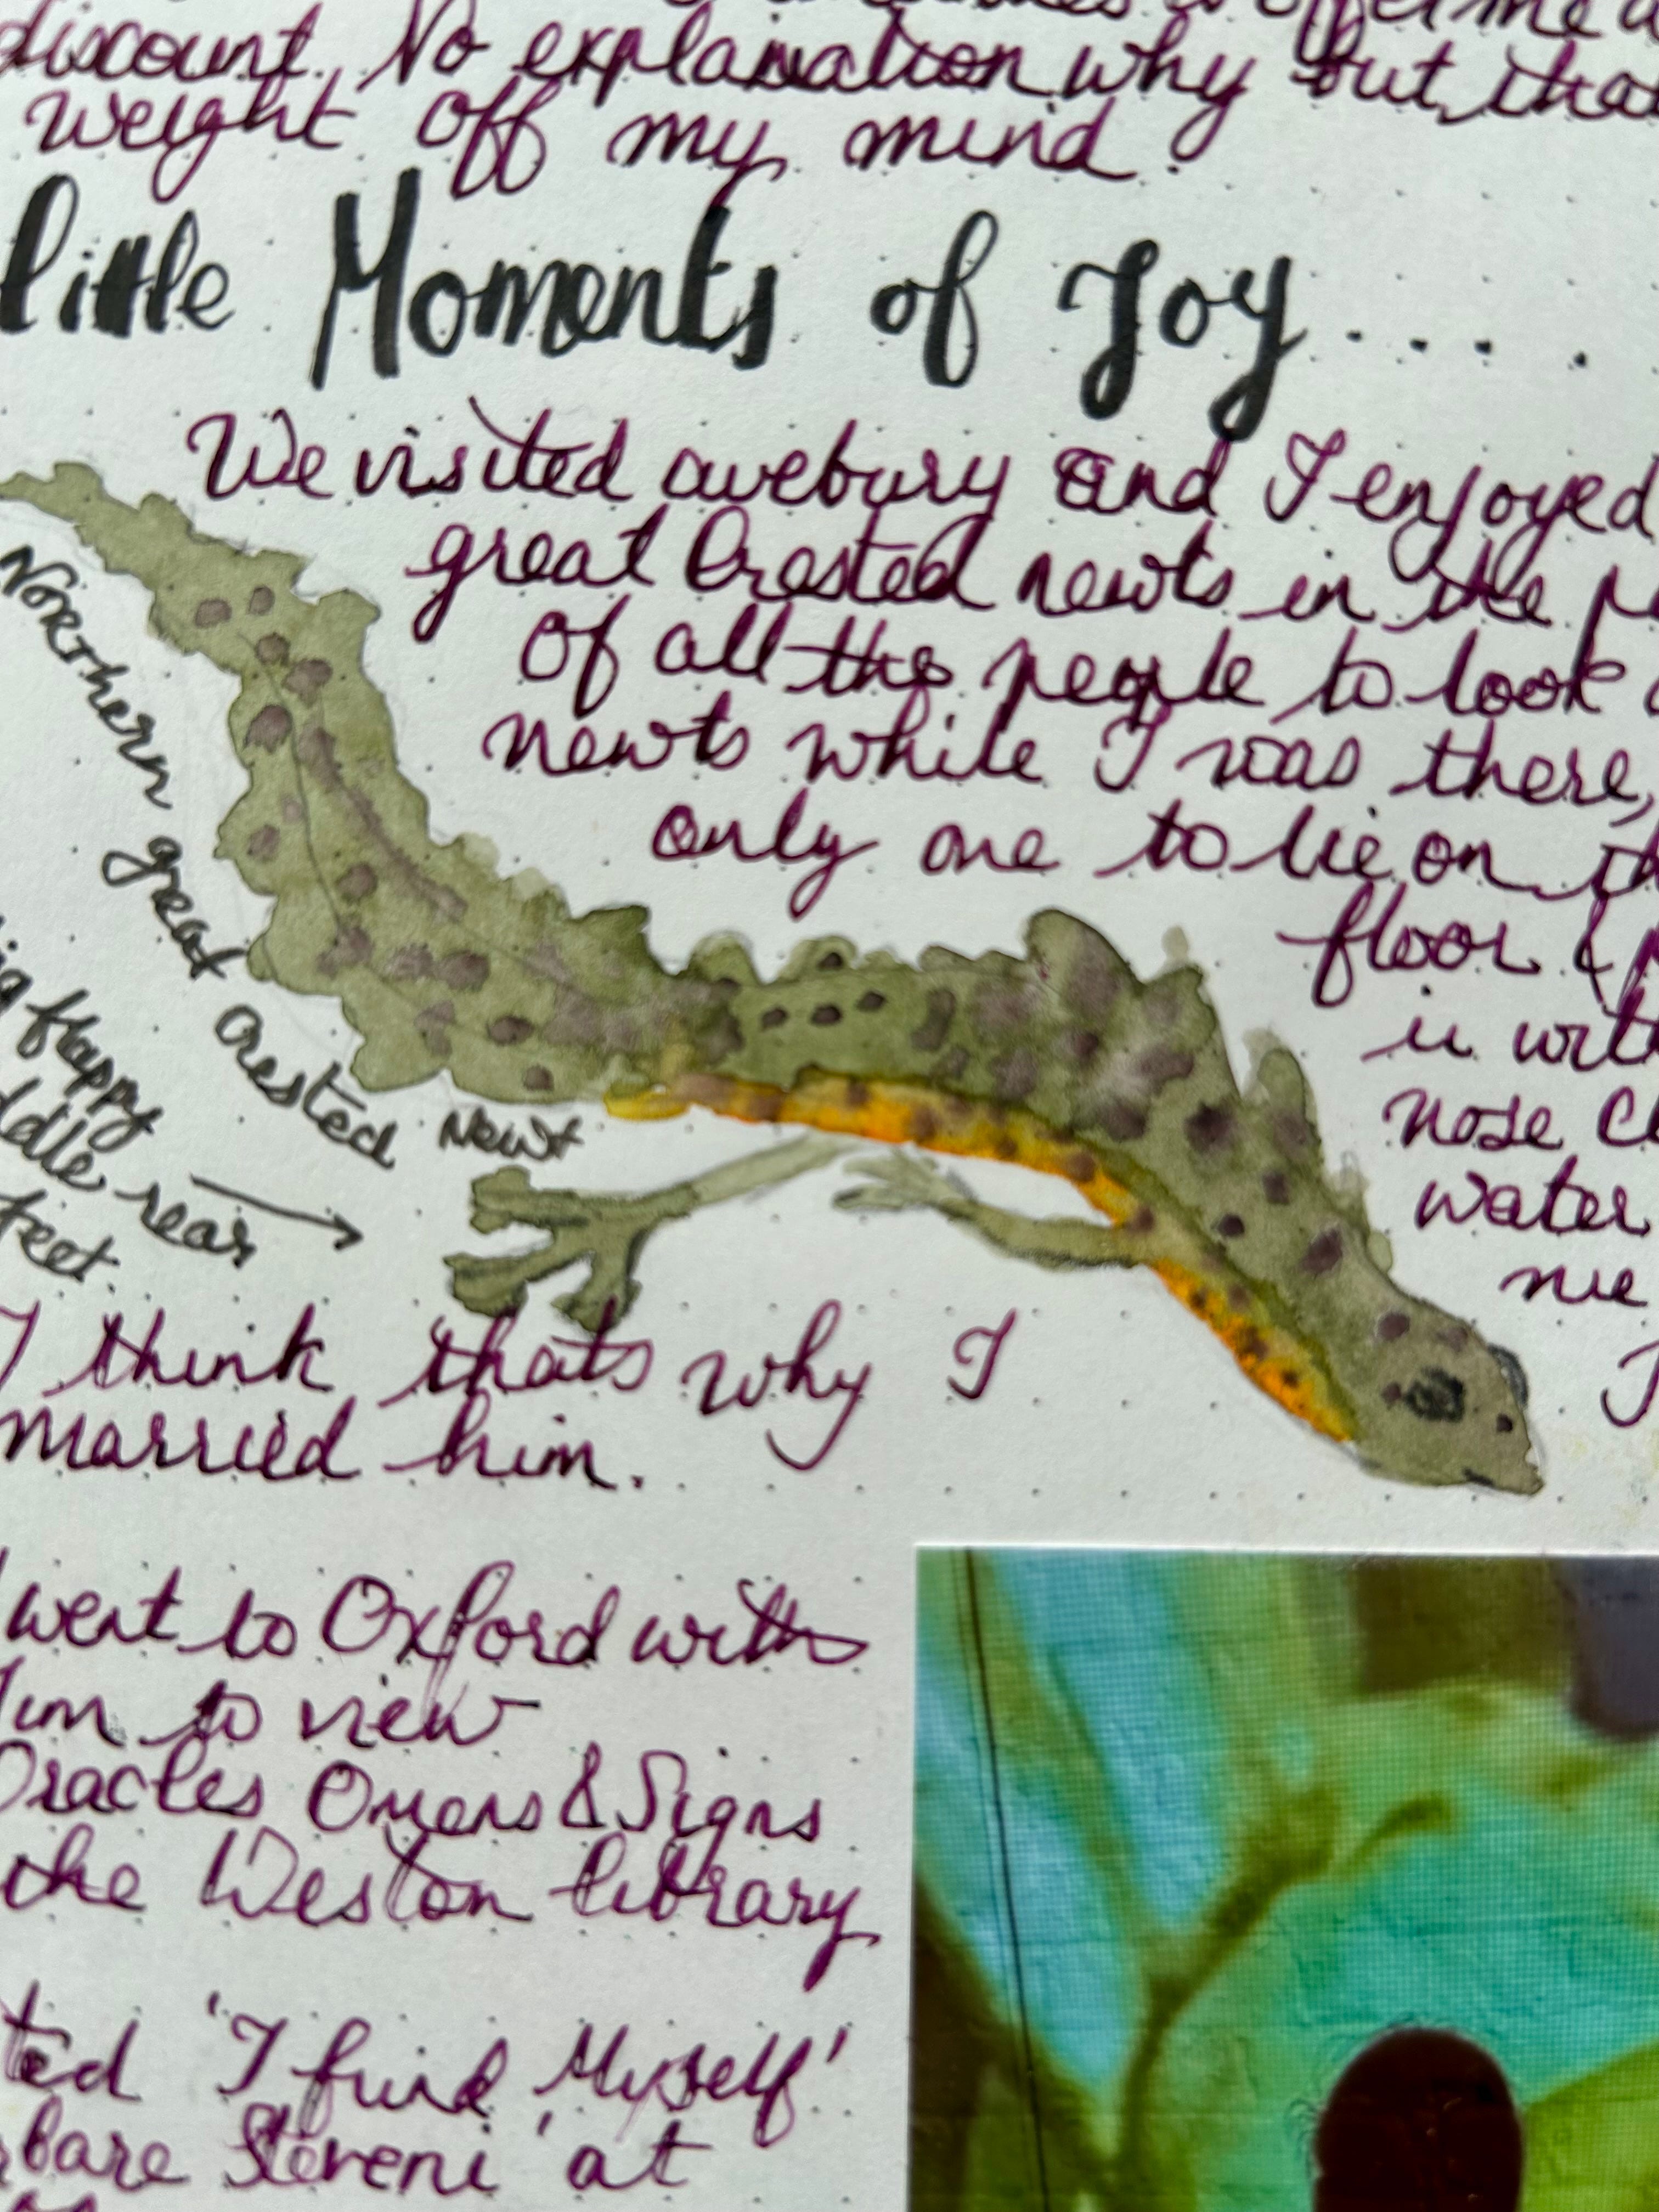 discount. No explanation why but that
weight off my mind.
little Moments of Joy.....
We visited avebury and I enjoyed
great Crested newts in the
Of all the people to look
newts while I was there,
only one to lie on
floor &
is
nose
water
me
Northern great crested Newt
flappy
rear
feet.
I think thats why I
married him.
went to Oxford with
to view
Oracles Omens & Signs
the Weston library
'I find Myself'
Steveni 'at